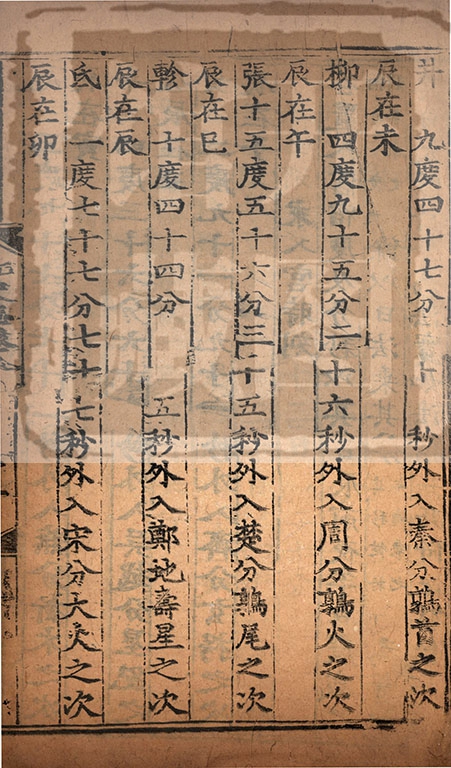 井 九度四十七分 十 秒外入秦分鶉首之次
辰在未
柳 四度九十五分二十六秒外入周分鶉火之次
辰在午
張十五度五十六分三十五秒外入楚分鶉尾之次
辰在巳
軫 十度四十四分 五秒外入鄭地壽星之次
辰在辰
氐 一度七十七分七十七秒外入宋分大火之次
辰在卯